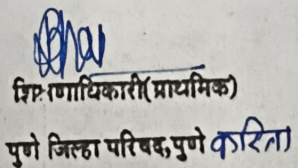 शिक्षणाधिकारी(प्राथमिक)
पुणे जिल्हा परिषद,पुणे करिता